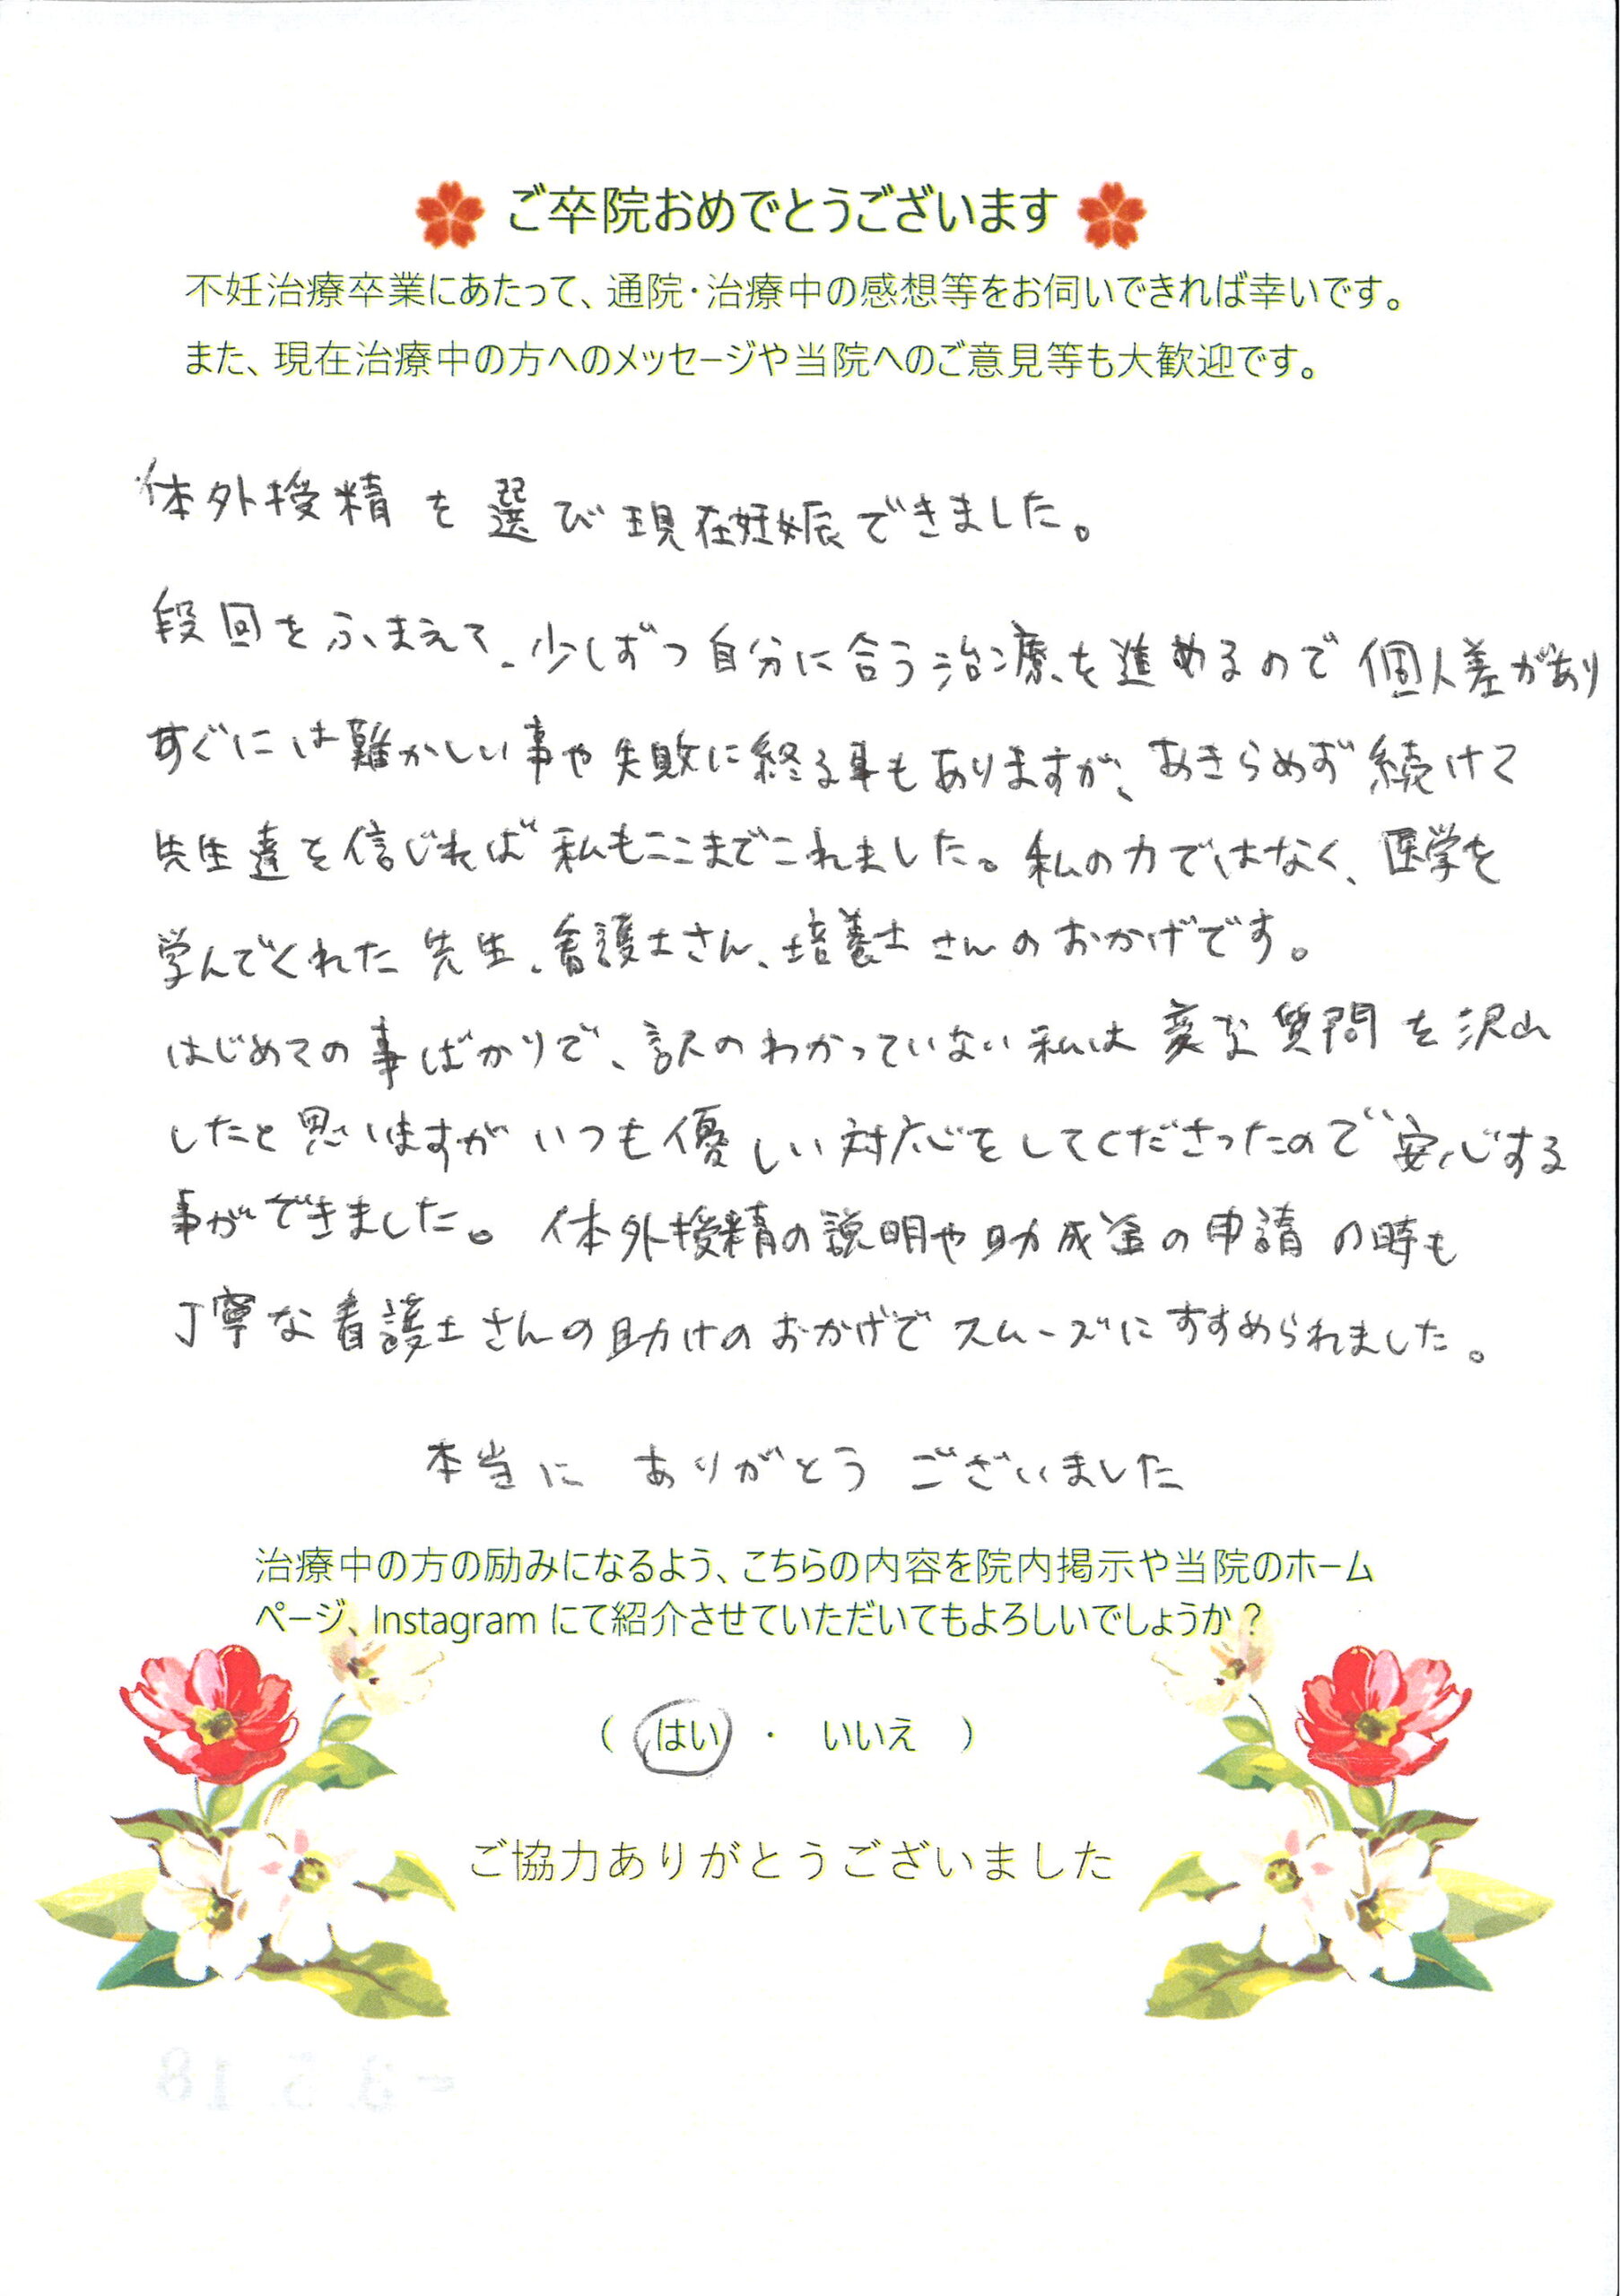 ご卒院おめでとうございます
不妊治療卒業にあたって、通院・治療中の感想等をお伺いできれば幸いです。
また、現在治療中の方へのメッセージや当院へのご意見等も大歓迎です。
体外授精を選び現在妊娠できました。
段回をふまえて、少しずつ自分に合う治療を進めるので個人差があり
すぐには難かしい事や失敗に終る事もありますが、あきらめず続けて
先生達を信じれば私もここまでこれました。私の力ではなく、医学を
学んでくれた先生、看護士さん、培養士さんのおかげです。
はじめての事ばかりで、訳のわかっていない私は変な質問を沢山
したと思いますがいつも優しい対応をしてくださったので安心する
事ができました。体外授精の説明や助成金の申請の時も
丁寧な看護士さんの助けのおかげでスムーズにすすめられました。
本当に ありがとう ございました
治療中の方の励みになるよう、こちらの内容を院内掲示や当院のホーム
ページ、Instagram にて紹介させていただいてもよろしいでしょうか？
（ はい ・ いいえ ）
ご協力ありがとうございました